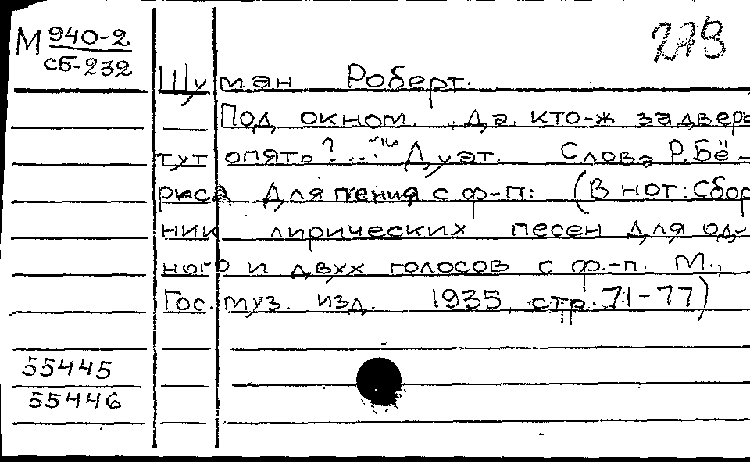 М 940-2
сб-232
273
Шуман Роберт.
Под окном. „Да, кто-ж за двер
тут опять?..." Дуэт. Слова Р. Бё-
рнса Для пения с ф-п: (В нот: Сбор
ник лирических песен для од-
ного и двух голосов с ф.-п. М.,
Гос. муз. изд. 1935, стр. 71-77)
55445
55446